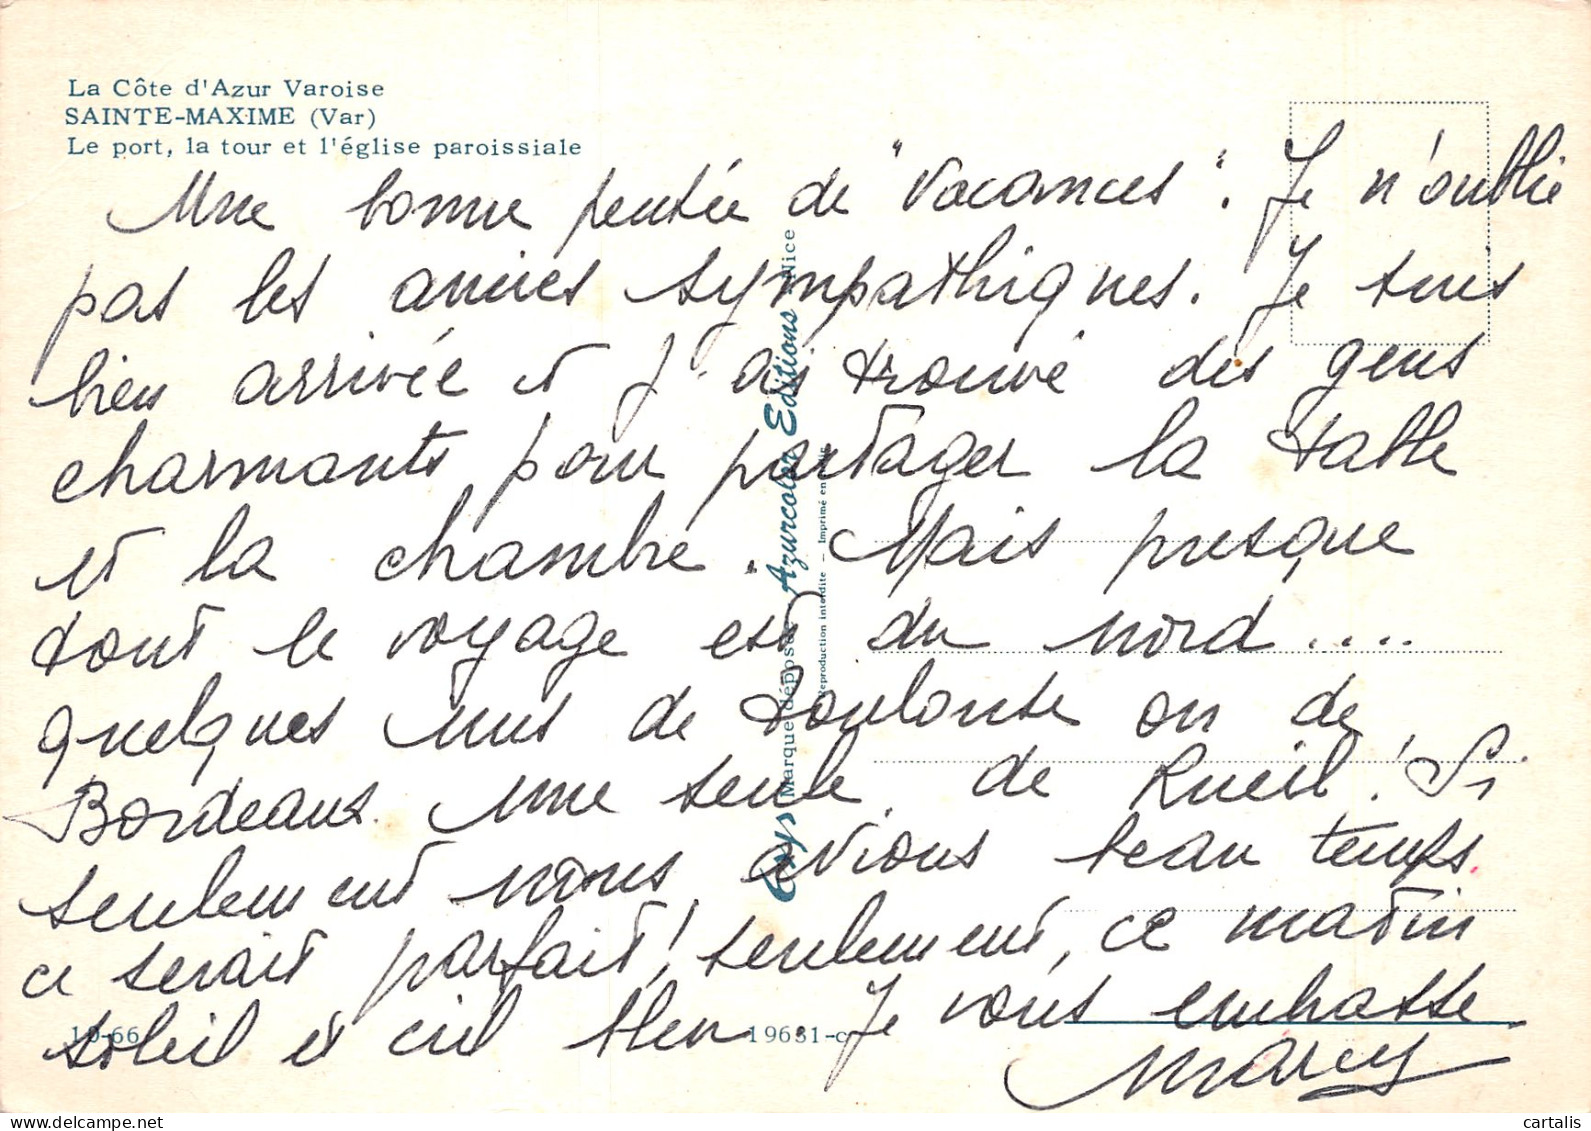 La Côte d'Azur Varoise
SAINTE-MAXIME (Var)
Le port, la tour et l'église paroissiale
Une bonne pensée de "vacances". Je n'oublie
pas les amies sympathiques. Je suis
bien arrivée et j'ai trouvé des gens
charmants pour partager la table
et la chambre. Mais presque
tout le voyage est du nord....
quelques unes de Toulouse ou de
Bordeaux. Une seule, de Rueil! Si
seulement nous avions beau temps
ce serait parfait! seulement, ce matin
soleil et ciel bleu Je vous embrasse
Marcy
Cays Marque déposée Azurcolor Editions Nice
Reproduction interdite — Imprimé en
10-66
19631-c
delcampe.net
cartalis